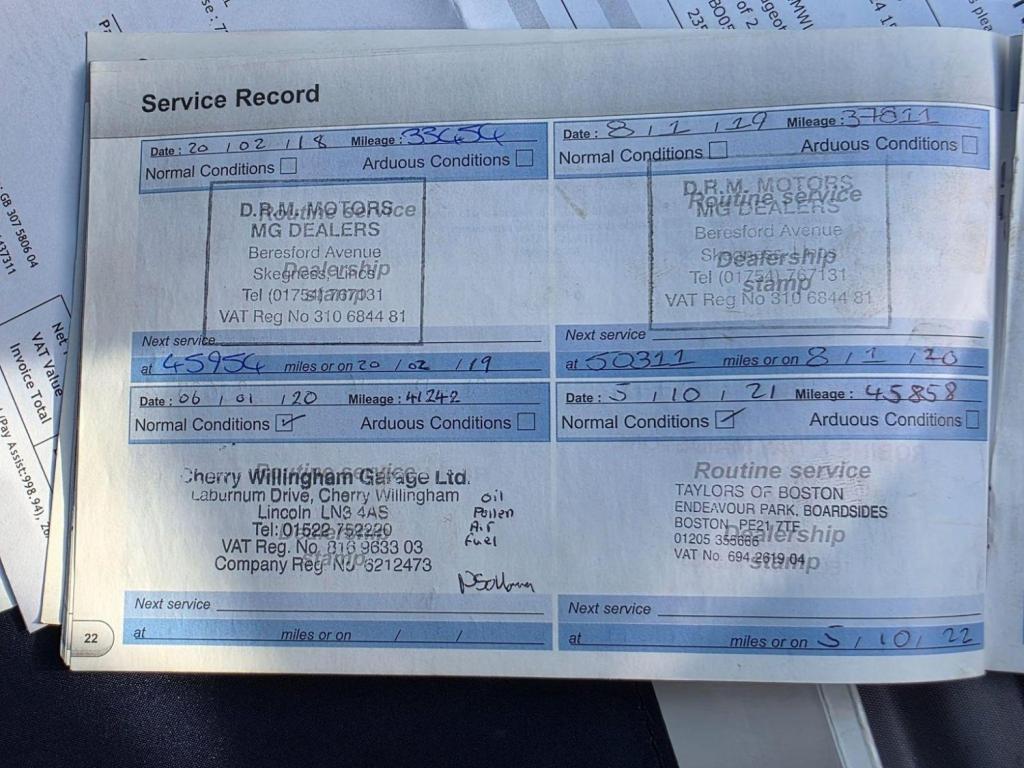 Service Record
Date : 20 / 02 / 18 Mileage : 33454
Normal Conditions Arduous Conditions
Routine service
Dealership
stamp
D.R.M. MOTORS
MG DEALERS
Beresford Avenue
Skegness, Lincs
Tel (01754) 767131
VAT Reg No 310 6844 81
Next service
at 45954 miles or on 20 / 02 / 19
Date : 8 / 1 / 19 Mileage : 37811
Normal Conditions Arduous Conditions
Routine service
Dealership
stamp
D.R.M. MOTORS
MG DEALERS
Beresford Avenue
Skegness, Lincs
Tel (01754) 767131
VAT Reg No 310 6844 81
Next service
at 50311 miles or on 8 / 1 / 20
Date : 06 / 01 / 20 Mileage : 41242
Normal Conditions ✓ Arduous Conditions
Routine service
Dealership
stamp
Cherry Willingham Garage Ltd.
Laburnum Drive, Cherry Willingham
Lincoln LN3 4AS
Tel: 01522 752220
VAT Reg. No. 816 9633 03
Company Reg No 6212473
oil
Pollen
Air
fuel
Next service
at miles or on / /
Date : 5 / 10 / 21 Mileage : 45858
Normal Conditions ✓ Arduous Conditions
Routine service
Dealership
stamp
TAYLORS OF BOSTON
ENDEAVOUR PARK, BOARDSIDES
BOSTON PE21 7TF
01205 355666
VAT No. 694 2619 04
Next service
at miles or on 5 / 10 / 22
22
GB 307 5806 04
437311
VAT Value
Invoice Total
of 2